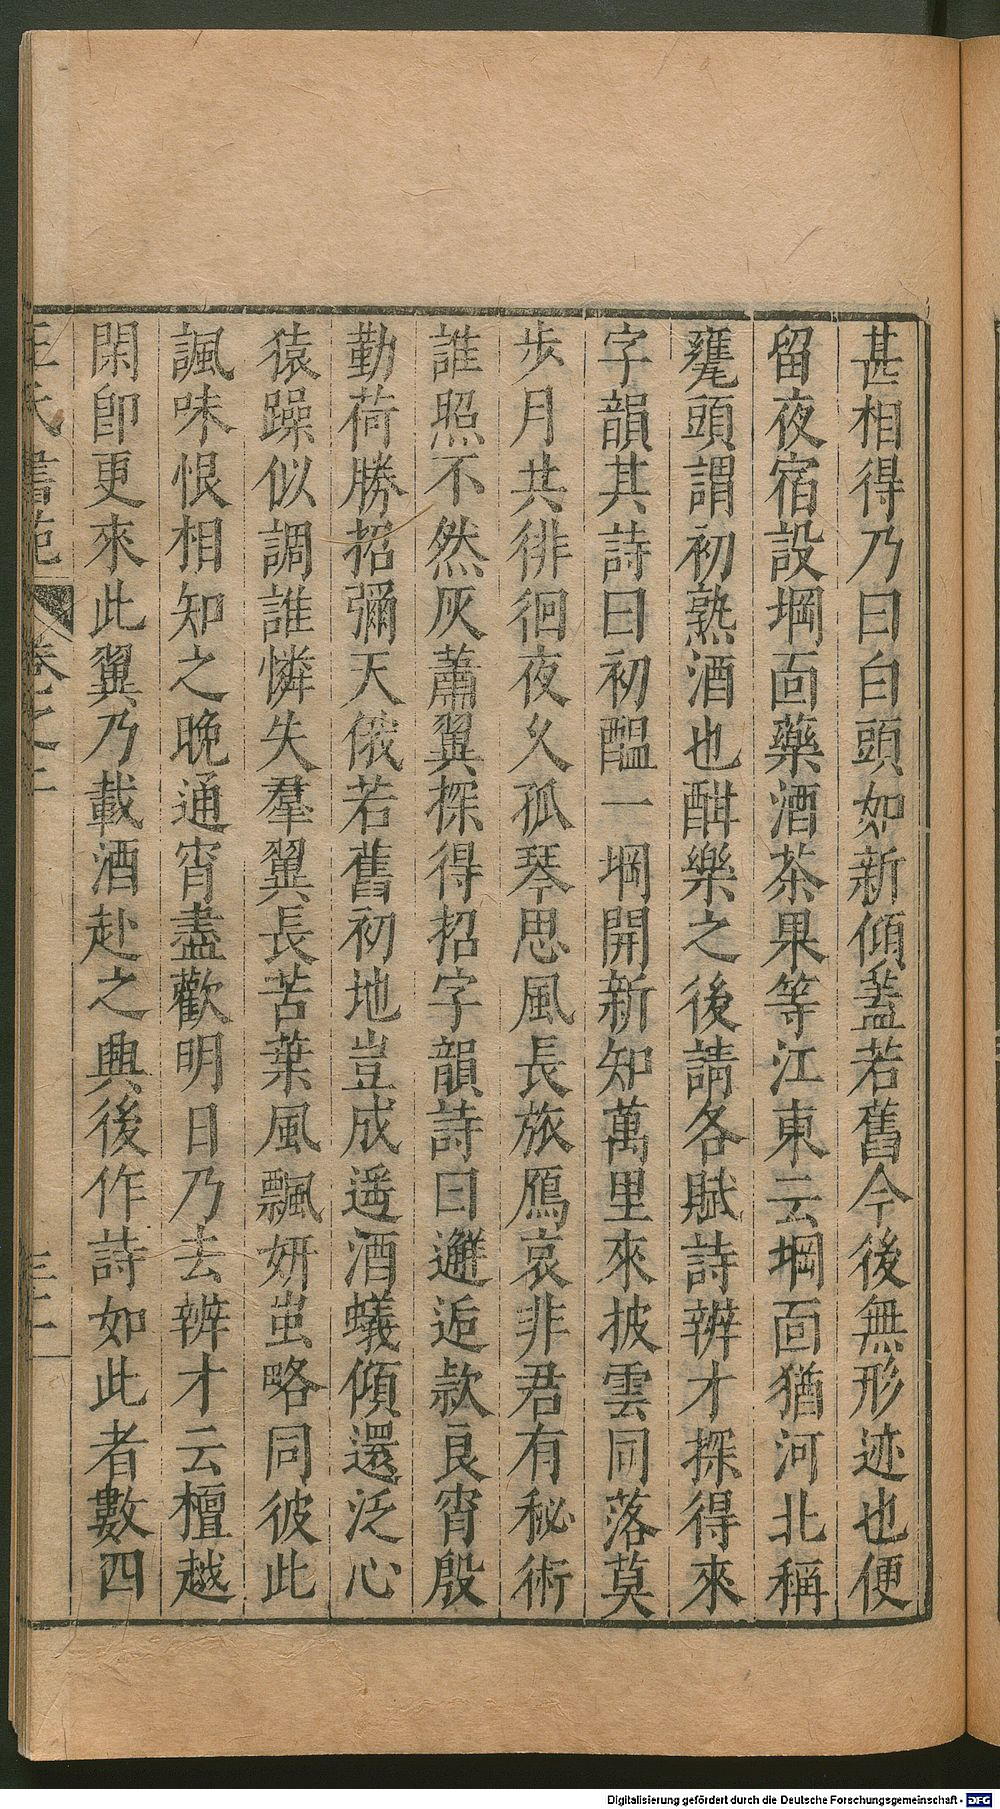 甚相得乃曰白頭如新傾蓋若舊今後無形迹也便
留夜宿設堈面藥酒茶果等江東云堈面猶河北稱
甕頭謂初熟酒也酣樂之後請各賦詩辨才探得來
字韻其詩曰初醞一堈開新知萬里來披雲同落莫
步月共徘徊夜久孤琴思風長旅鴈哀非君有秘術
誰照不然灰蕭翼探得招字韻詩曰邂逅款良宵殷
勤荷勝招彌天俄若舊初地豈成遥酒蟻傾還泛心
猿躁似調誰憐失羣翼長苦葉風飄妍蚩略同彼此
諷味恨相知之晚通宵盡歡明日乃去辨才云檀越
閑即更來此翼乃載酒赴之興後作詩如此者數四
王氏書苑 卷之二
Digitalisierung gefördert durch die Deutsche Forschungsgemeinschaft - DFG